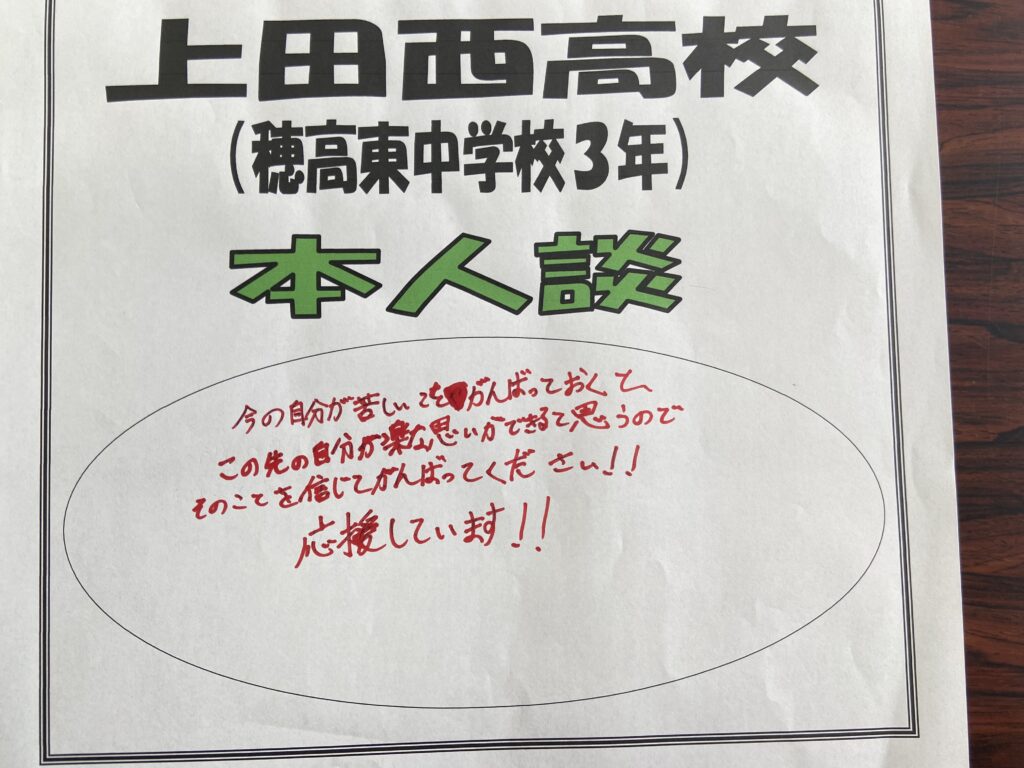 上田西高校
(穂高東中学校3年)
本人談
今の自分が苦しくてもがんばっておくと、
この先の自分が楽な思いができると思うので
そのことを信じてがんばってください!!
応援しています!!